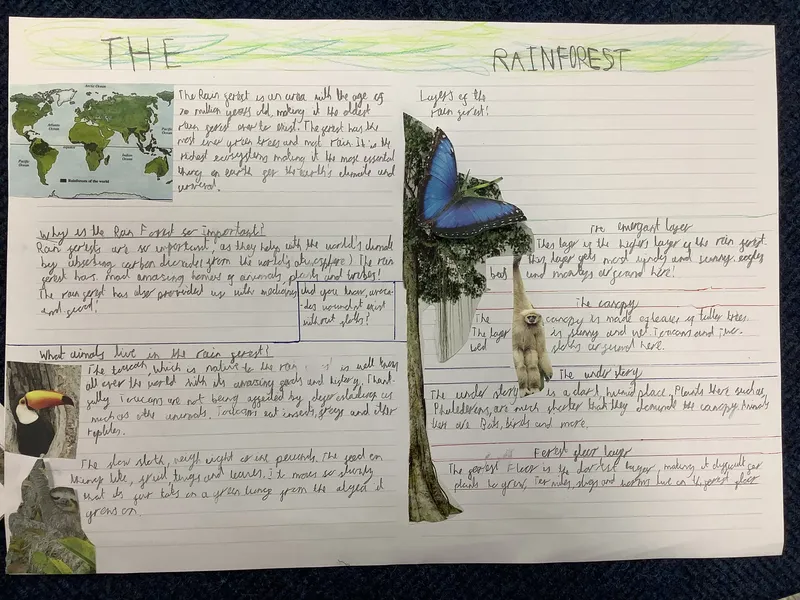 THE RAINFOREST
Arctic Ocean
Atlantic Ocean
Pacific Ocean
Indian Ocean
Pacific Ocean
Rainforests of the world
The Rain forest is an area with the age of
70 million years old, making it the oldest
rain forest ever to exist. The forest has the
most ever green trees and most rain. it is the
richest ecosystems making it the most essential
thing on earth for the earth's climate and
survival.
Why is the Rain Forest so important?
Rain forests are so important, as they help with the world's climate
by absorbing carbon dioxide from the world's atmosphere! The rain
forest has many amazing homes of animals, plants and tribes!
The rain forest has also provided us with medicines
and food!
Did you know, avoca-
dos wouldn't exist
without sloths!
What animals live in the rain forest?
The toucan, which is native to the rain is well known
all over the world with its amazing and history. Thank-
fully Toucans are not being affected by deforestation as
much as other animals. Toucans eat insects, frogs and other
reptiles.
The slow sloth, weigh eight at one pounds. The feed on
things like, fruit, twigs and leaves. It moves so slowly
that its fur takes on a green tinge from the algea it
grows on.
Layers of the
rain forest!
The emergant layer
This layer is the highest layer of the rain forest.
This layer gets most windy and sunny, eagles
bats and monkeys are found here!
The canopy
The canopy is made of leaves of taller trees.
The layer is sunny and wet. Toucans and
sloths are found here.
The under story
The under story is a dark, humid place. Plants there such as
Philodendrons, are much shorter that they the canopy. Animals
here are Bats, birds and more.
Forest floor layer
The forest floor is the darkest layer, making it difficult for
plants to grow. Termites, slugs and worms live on the forest floor